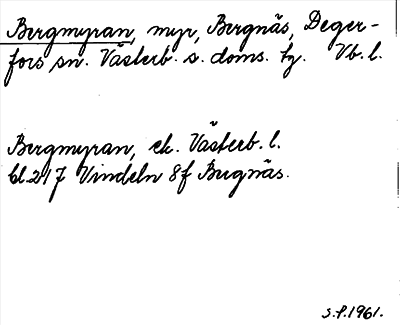 Bergmyran, myr, Bergnäs, Deger-
fors sn. Västerb. s. doms. tg. Vb. l.
Bergmyran, ek. Västerb. l.
bl. 217 Vindeln 8f Bergnäs.
S.f. 1961.